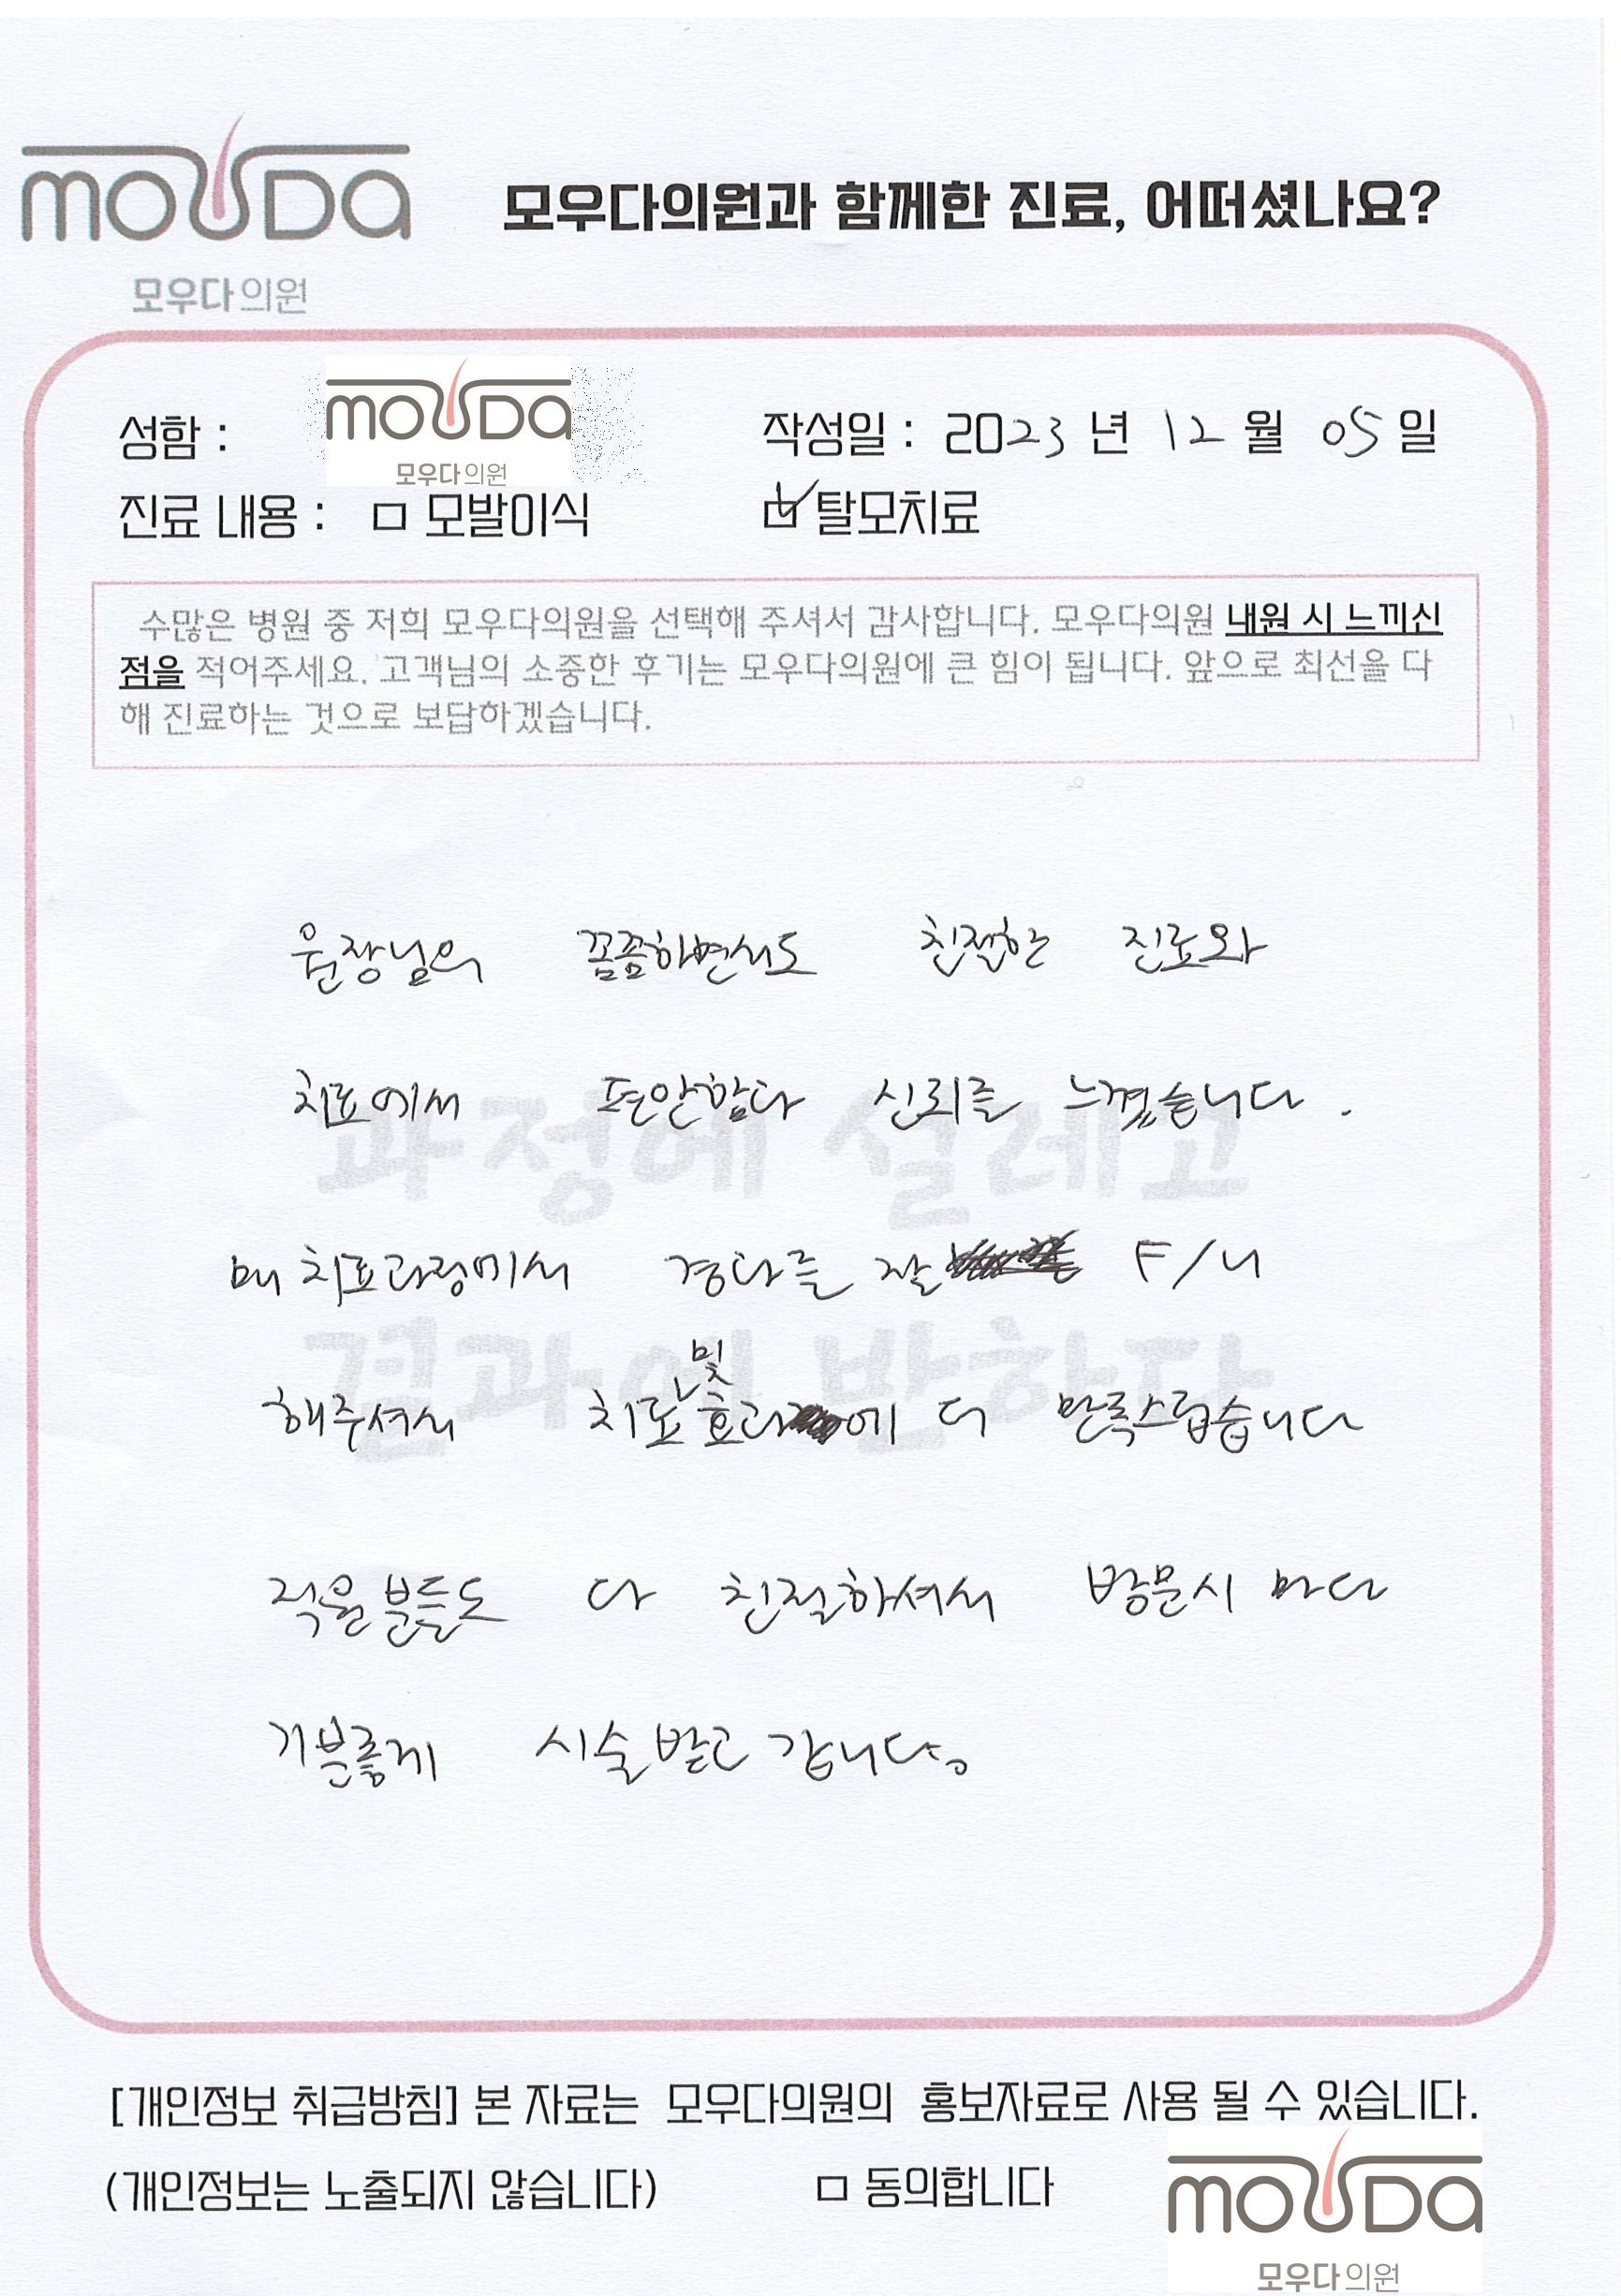 mouDa
모우다의원
모우다의원과 함께한 진료, 어떠셨나요?
성함 :
mouDa
모우다의원
작성일 : 2023 년 12 월 05 일
진료 내용 : □ 모발이식 ☑ 탈모치료
수많은 병원 중 저희 모우다의원을 선택해 주셔서 감사합니다. 모우다의원 내원 시 느끼신
점을 적어주세요. 고객님의 소중한 후기는 모우다의원에 큰 힘이 됩니다. 앞으로 최선을 다
해 진료하는 것으로 보답하겠습니다.
원장님의 꼼꼼하면서도 친절한 진료와
치료에서 편안함과 신뢰를 느꼈습니다.
과정에 설레고
매 치료과정에서 경과를 잘 F/U
결과에 반하다
해주셔서 치료 및 효과에 더 만족스럽습니다
직원분들도 다 친절하셔서 방문시 마다
기분좋게 시술받고 갑니다。
[개인정보 취급방침] 본 자료는 모우다의원의 홍보자료로 사용 될 수 있습니다.
(개인정보는 노출되지 않습니다) □ 동의합니다
mouDa
모우다의원